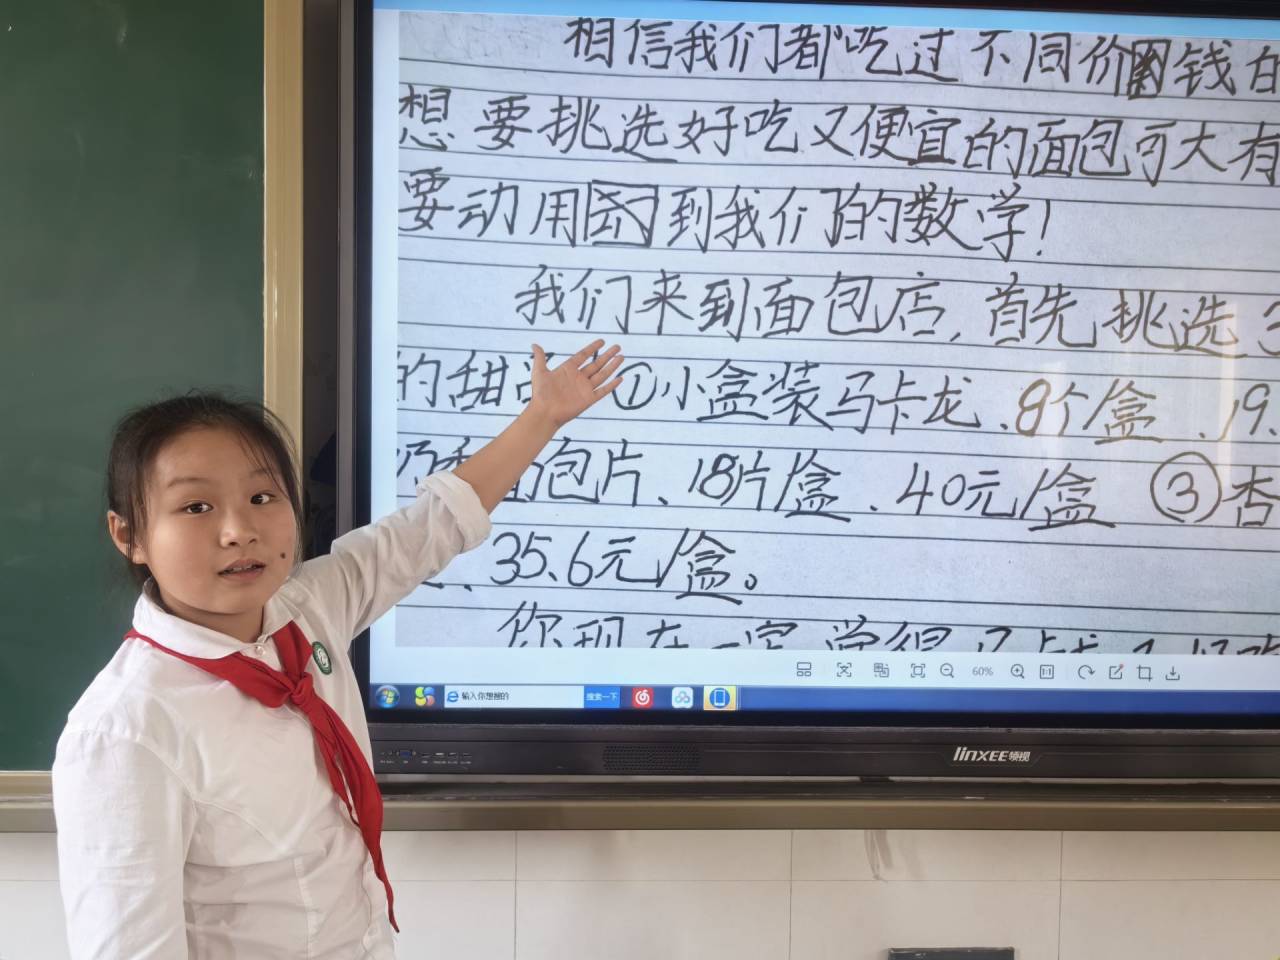 相信我们都吃过不同价钱的
想要挑选好吃又便宜的面包可大有
要动用到我们的数学!
我们来到面包店,首先挑选3
的甜品 ①小盒装马卡龙、8个/盒、19.
包片、18片/盒、40元/盒 ③杏
、35.6元/盒。
你现在一定觉得
60%
输入你想搜的
搜索一下
linxee领视